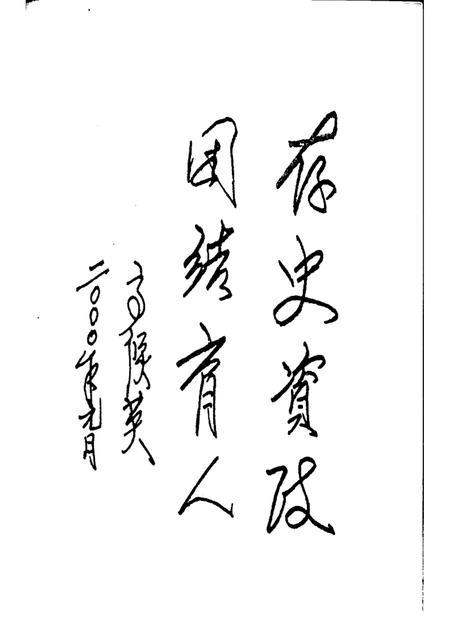 存史資政
团结育人
高俊英
二〇〇〇年元月